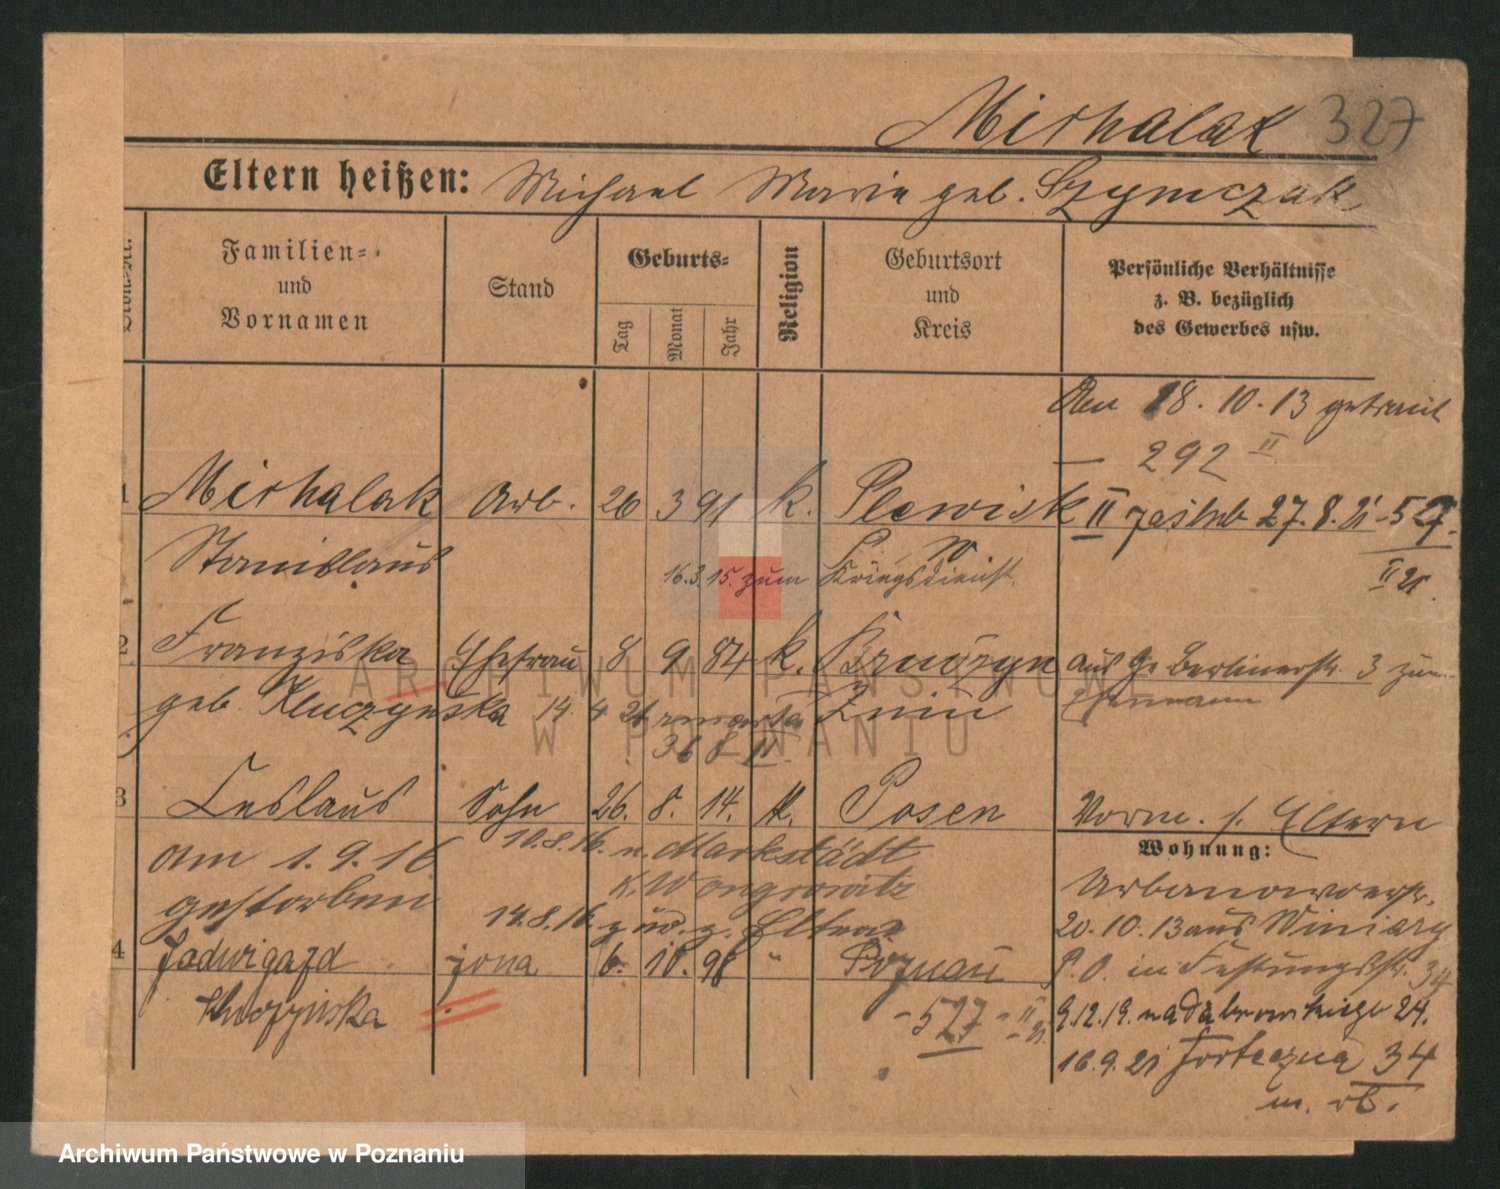 Michalak 327
Eltern heißen: Michael Marie geb. Szymczak
Familien- und Vornamen
Stand
Geburts-
Tag
Monat
Jahr
Religion
Geburtsort und Kreis
Persönliche Verhältnisse z. B. bezüglich des Gewerbes usw.
Am 18.10.13 getraut
292 II
1 Michalak Arb. 26 3 91 k. Plewisk II 27.8.21 - 527.
Stanislaus 16.3.15. zum Kriegsdienst
II 21.
2 Franziska Ehefrau 8 9 84 k. aus Gr. Berlinerstr. 3 zum
geb. Kluczynska 14. 4 21 zmarła Żnin Ehemann
368 II
3 Ceslaus Sohn 26. 8. 14. k. Posen Vorm. s. Eltern
10.8.16. n. Markstädt
Wohnung:
am 1.9.16 K. Wongrowitz Urbanowoerstr.
gestorben 14.8.16. zur. z. Eltern 20.10.13 aus Winiary
4 Jadwiga żona 6. 10. 98 " Poznań P.O. in Festungsstr. 34
Kluczyńska - 527 - II 21. 9.12.19. na Dąbrowskiego 24.
16.9.21 Forteczna 34
ARCHIWUM PAŃSTWOWE
W POZNANIU
Archiwum Państwowe w Poznaniu